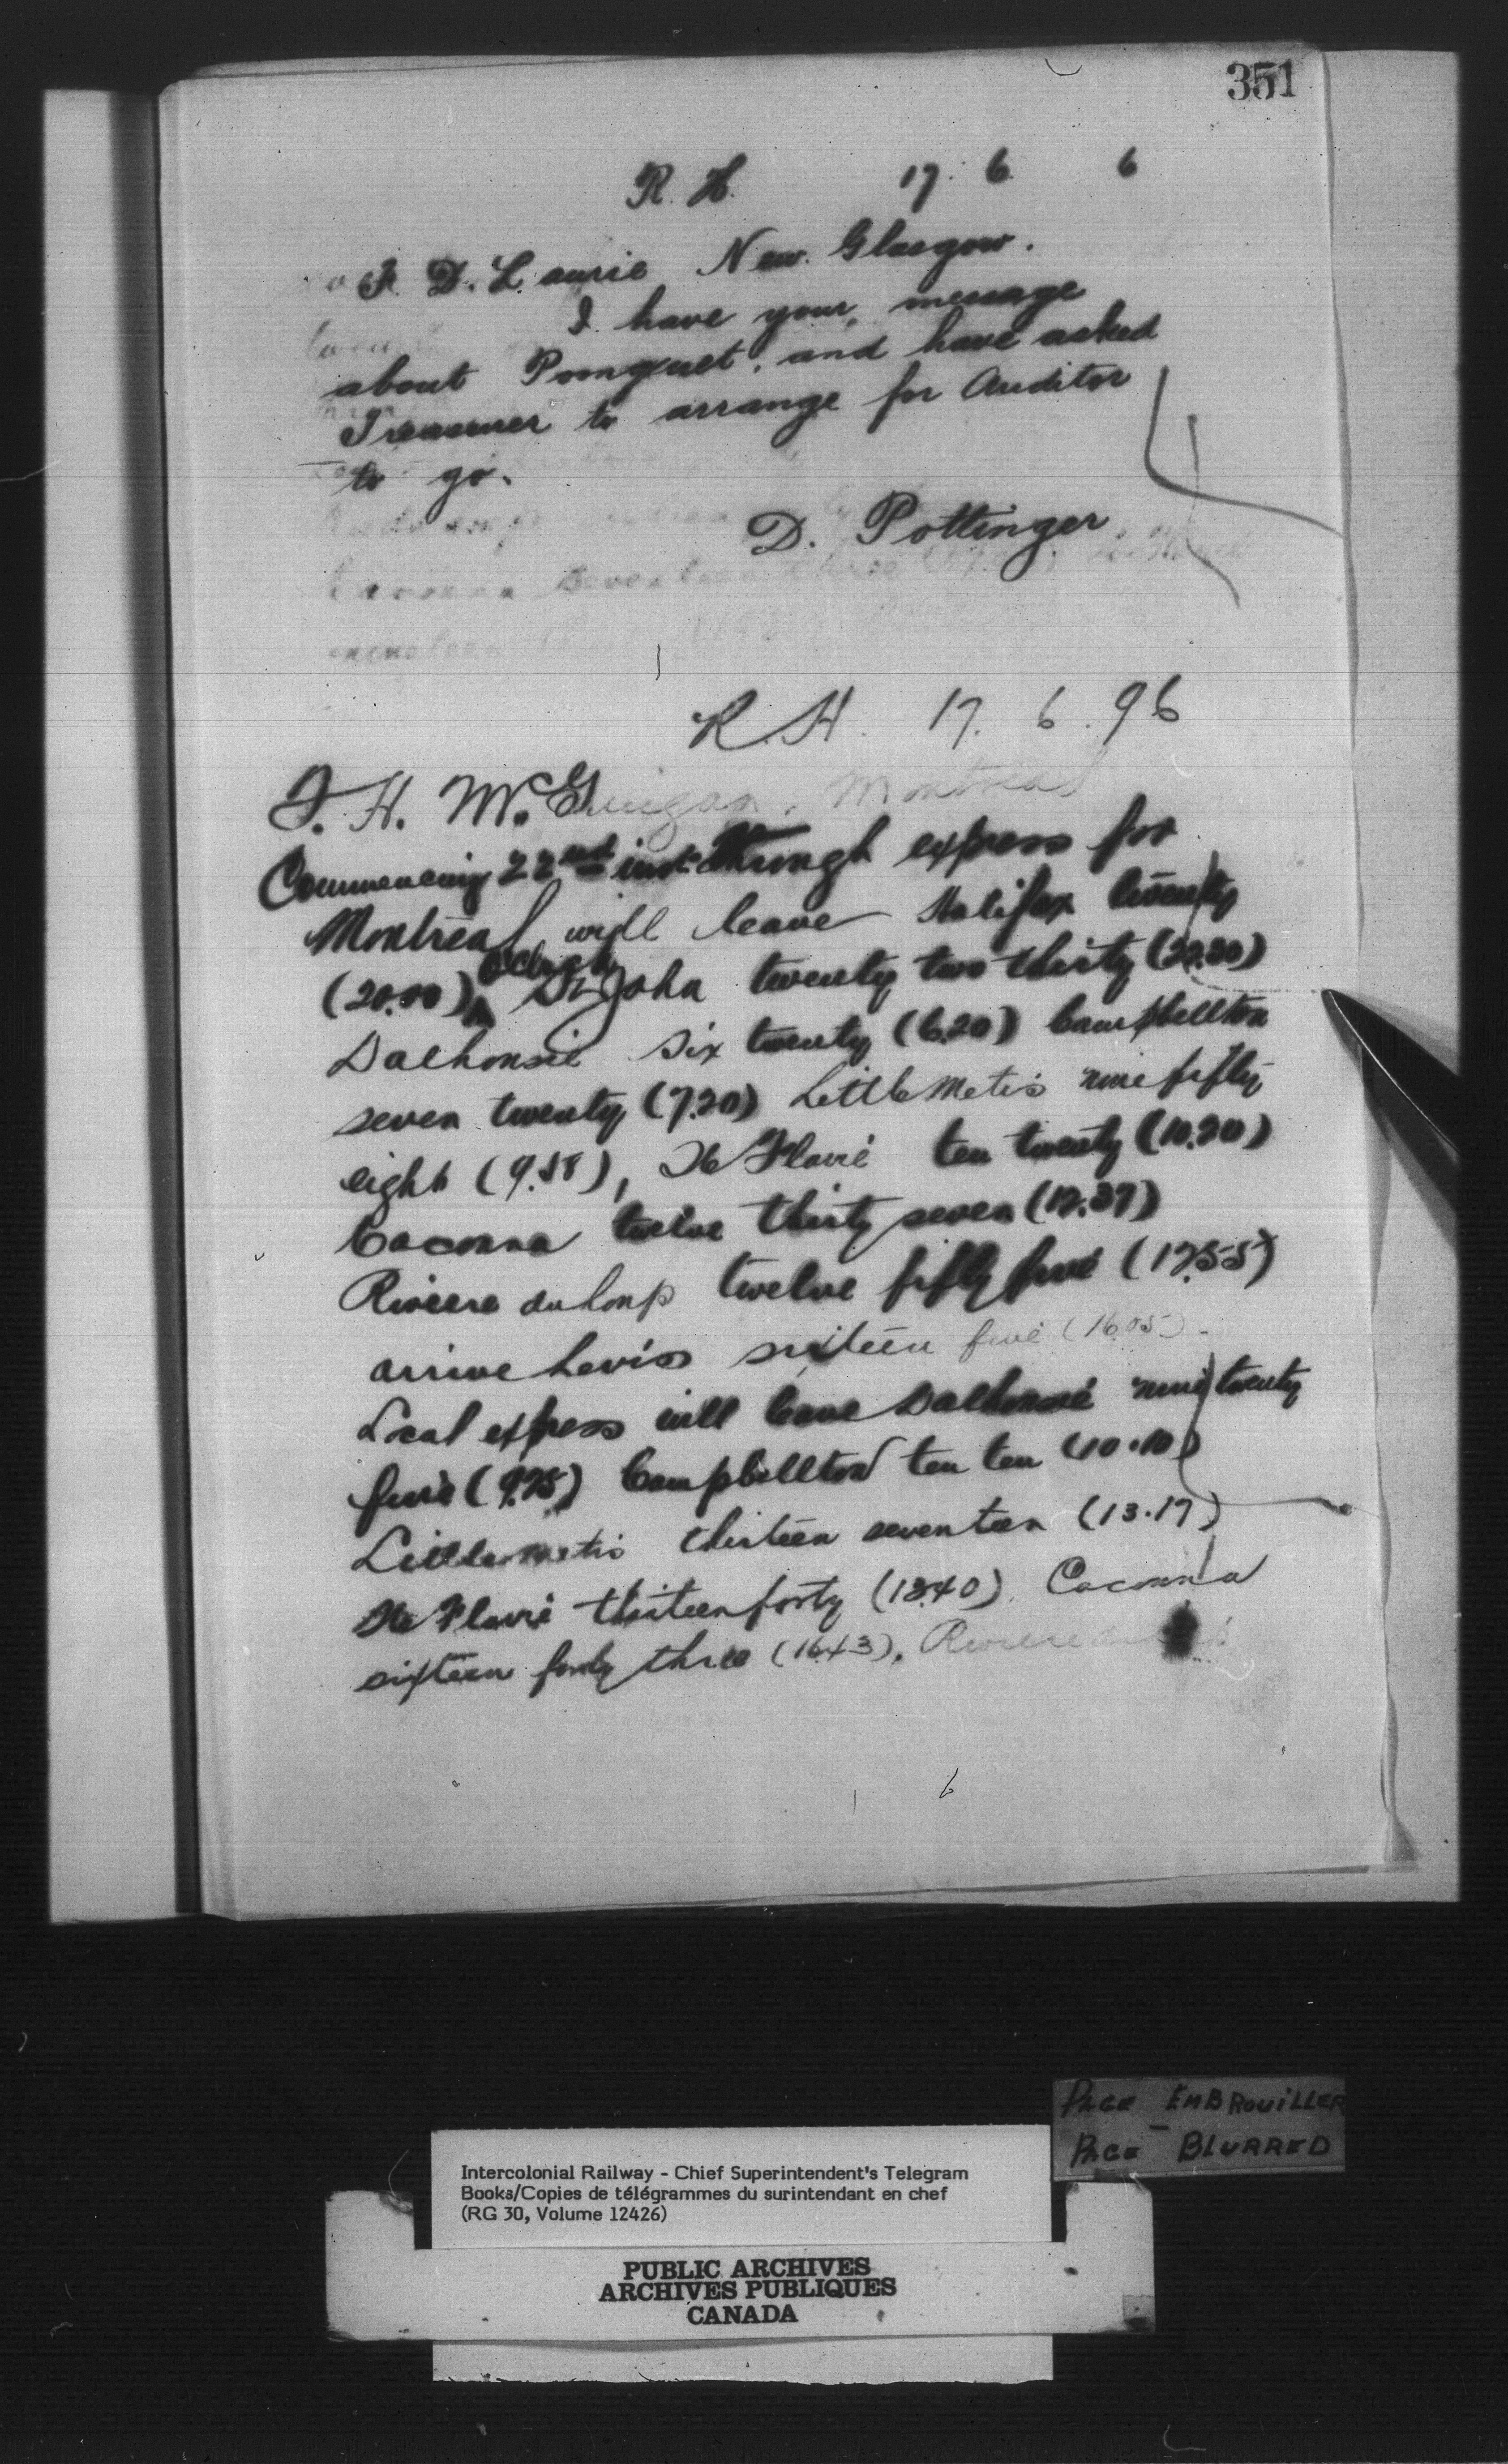 351
R. H. 17. 6. 6
F. D. Laurie New Glasgow.
I have your message
about Pomquet, and have asked
Treasurer to arrange for Auditor
to go.
D. Pottinger
R.H. 17. 6. 96
F. H. McGuigan, Montreal
Commencing 22nd inst through express for
Montreal will leave Halifax twenty
(20.00) oclock St John twenty two thirty (22.30)
Dalhousie six twenty (6.20) Campbellton
seven twenty (7.20) Little Metis nine fifty
eight (9.58), Ste Flavie ten twenty (10.20)
Cacouna twelve thirty seven (12.37)
Riviere du Loup twelve fifty five (12.55)
arrive Levis sixteen five (16.05).
Local express will leave Dalhousie nine twenty
five (9.25) Campbellton ten ten (10.10)
Little Metis thirteen seventeen (13.17)
Ste Flavie thirteen forty (13.40) Cacouna
sixteen forty three (16.43), Riviere du
PAGE EMBROUILLER
PAGE BLURRED
Intercolonial Railway - Chief Superintendent's Telegram
Books/Copies de télégrammes du surintendant en chef
(RG 30, Volume 12426)
PUBLIC ARCHIVES
ARCHIVES PUBLIQUES
CANADA